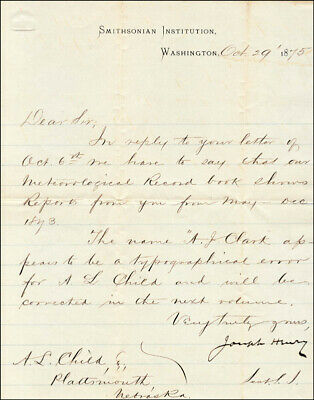 SMITHSONIAN INSTITUTION,
WASHINGTON, Oct. 29' 1875
Dear Sir,
In reply to your letter of
Oct. 6th we have to say that our
Meteorological Record book shows
Reports from you from May - Dec
1873.
The name "A. J. Clark ap-
pears to be a typographical error
for A L Child and will be
corrected in the next volume.
Very truly yours,
Joseph Henry
A. L. Child,
Plattsmouth,
Nebraska.